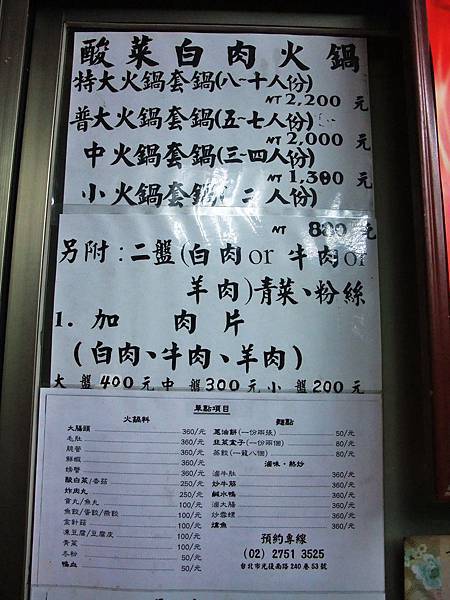 酸菜白肉火鍋
特大火鍋套鍋(八~十人份)
NT 2,200 元
普大火鍋套鍋(五~七人份)
NT 2,000 元
中火鍋套鍋(三~四人份)
NT 1,380 元
小火鍋套鍋( 二人份)
NT 880 元
另附:二盤(白肉or 牛肉or
羊肉)青菜、粉絲
1. 加 肉 片
(白肉、牛肉、羊肉)
大盤400元中盤300元小盤200元
單點項目
火鍋料
大腸頭 360/元
毛肚 360/元
脆管 360/元
鮮蝦 360/元
螃蟹 360/元
酸白菜/香菇 250/元
炸肉丸 250/元
貢丸/魚丸 100/元
魚餃/蛋餃/燕餃 100/元
金針菇 100/元
凍豆腐/豆腐皮 100/元
青菜 100/元
冬粉 50/元
鴨血 50/元
麵點
蔥油餅(一份兩張) 80/元
韭菜盒子(一份兩個) 80/元
蒸餃(一籠八個) 80/元
滷味、熱炒
滷牛肚 360/元
炒牛筋 360/元
鹹水鴨 360/元
滷大腸 360/元
炒螺 360/元
燻魚 360/元
預約專線
(02) 2751 3525
台北市光復南路240巷53號